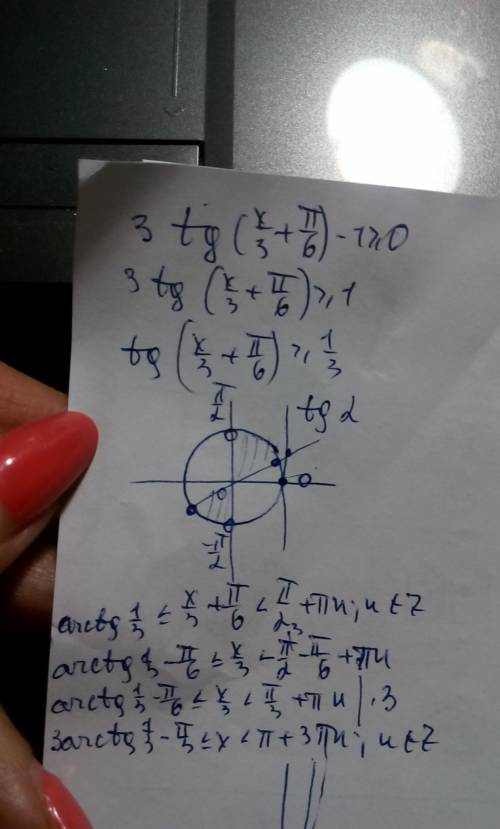 3 tg (x/3 + π/6) - 1 ≥ 0
3 tg (x/3 + π/6) ≥ 1
tg (x/3 + π/6) ≥ 1/3
π/2
tg α
0
0
-π/2
arctg 1/3 ≤ x/3 + π/6 < π/2 + πn; n ∈ Z
arctg 1/3 - π/6 ≤ x/3 < π/2 - π/6 + πn
arctg 1/3 - π/6 ≤ x/3 < π/3 + πn | · 3
3arctg 1/3 - π/3 ≤ x < π + 3πn; n ∈ Z